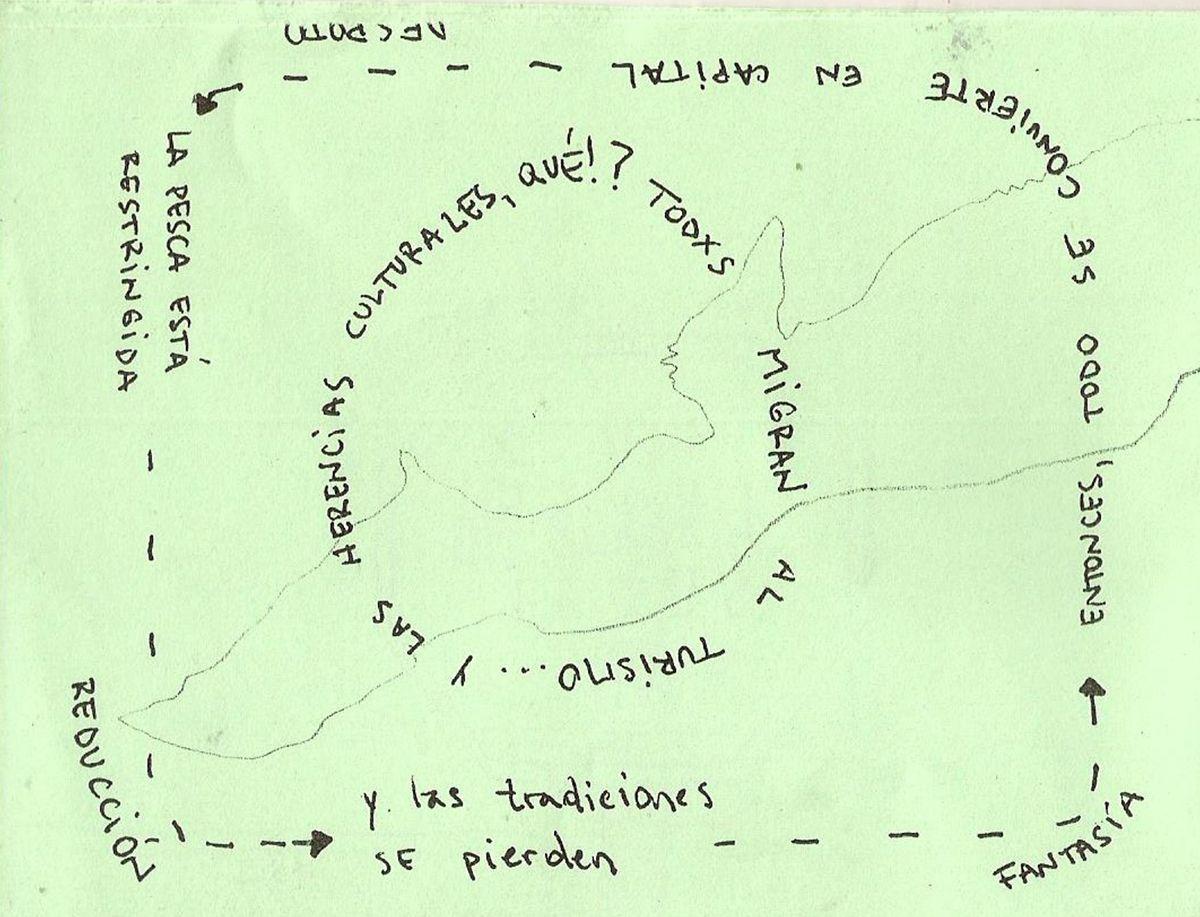 LA PESCA ESTÁ
RESTRINGIDA
REDUCCIÓN
y las tradiciones
SE pierden
FANTASÍA
ENTONCES, TODO SE CONVIERTE EN CAPITAL
TODXS MIGRAN AL TURISMO... Y LAS HERENCIAS CULTURALES, QUÉ!?